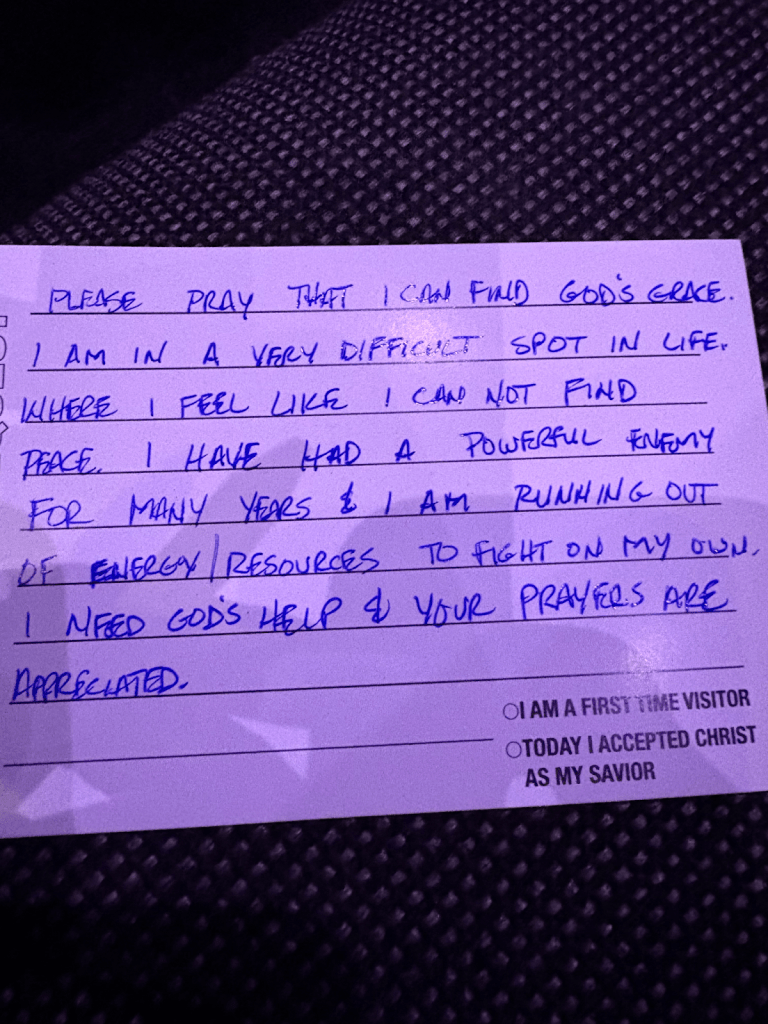 PLEASE PRAY THAT I CAN FIND GOD'S GRACE.
I AM IN A VERY DIFFICULT SPOT IN LIFE.
WHERE I FEEL LIKE I CAN NOT FIND
PEACE. I HAVE HAD A POWERFUL ENEMY
FOR MANY YEARS & I AM RUNNING OUT
OF ENERGY/RESOURCES TO FIGHT ON MY OWN.
I NEED GOD'S HELP & YOUR PRAYERS ARE
APPRECIATED.
I AM A FIRST TIME VISITOR
TODAY I ACCEPTED CHRIST
AS MY SAVIOR